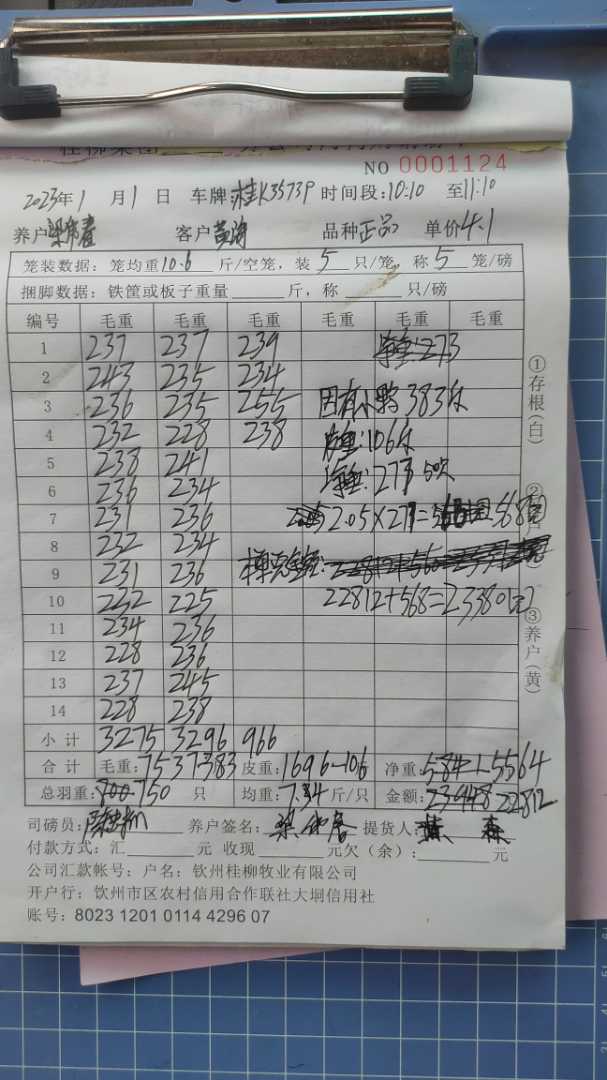 NO 0001124
2023年1月1日 车牌:桂K3573P 时间段:10:10 至11:10
养户 客户 品种正品 单价4.1
笼装数据：笼均重10.6斤/空笼，装5只/笼，称5笼/磅
捆脚数据：铁筐或板子重量 斤，称 只/磅
编号 毛重 毛重 毛重 毛重 毛重 毛重
1 237 237 239 净重:273
2 243 235 234
3 236 235 255 因有小鸭383斤
4 232 228 238 皮重:106斤
5 238 241 净重:277 50只
6 236 234
7 231 236 2.05×277=568元
8 232 234
9 231 236
10 232 225 22812+568=23380元
11 234 236
12 228 236
13 237 245
14 228 238
小计 3275 3296 966
合计 毛重:7537-383 皮重:1696-106 净重:5841 5564
总羽重:800-750 只 均重:7.34斤/只 金额:23948 22812
司磅员: 养户签名: 提货人:
付款方式：汇 元 收现 元欠（余）: 元
公司汇款帐号：户名：钦州桂柳牧业有限公司
开户行：钦州市区农村信用合作联社大垌信用社
账号：8023 1201 0114 4296 07
①存根(白)
③养户(黄)